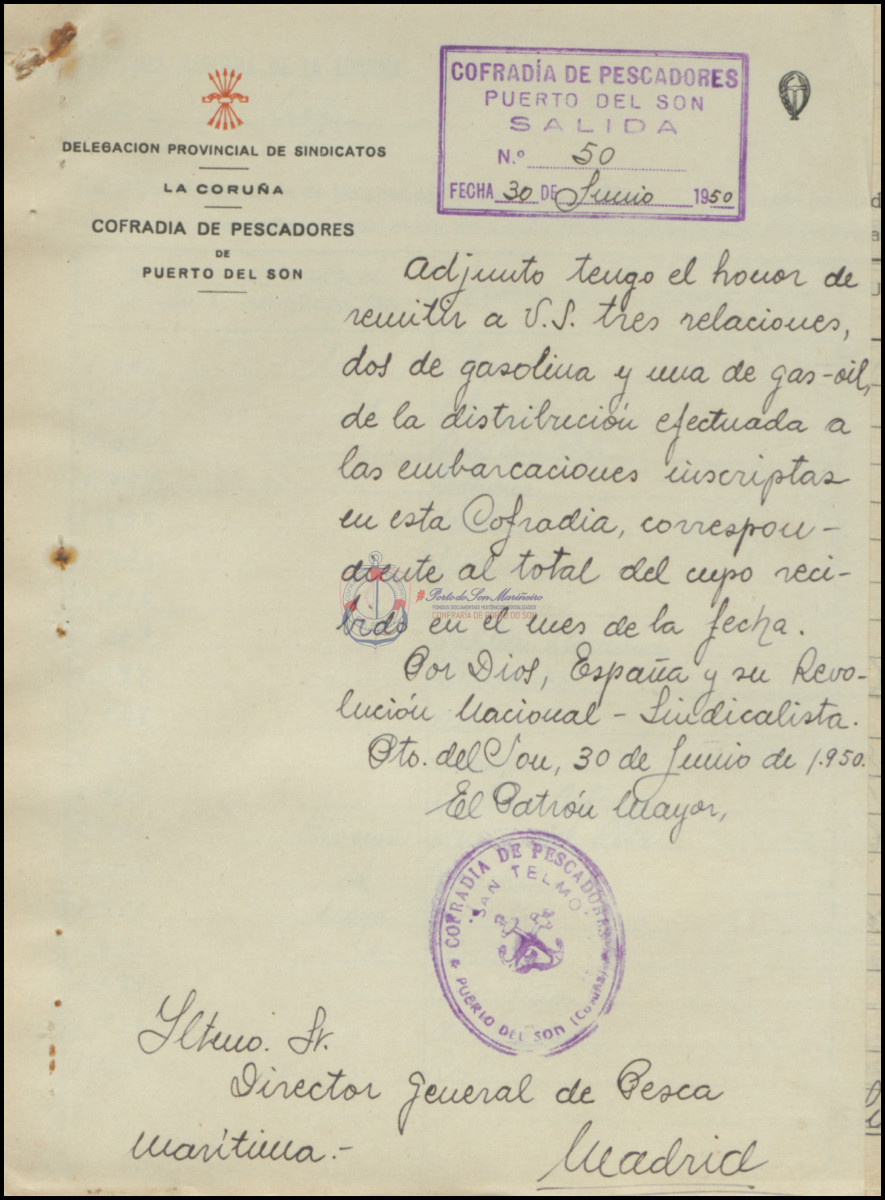 DELEGACION PROVINCIAL DE SINDICATOS
LA CORUÑA
COFRADIA DE PESCADORES
DE
PUERTO DEL SON
COFRADÍA DE PESCADORES
PUERTO DEL SON
SALIDA
N.º 50
FECHA 30 DE Junio 1950
Adjunto tengo el honor de
remitir a V.S. tres relaciones,
dos de gasolina y una de gas-oil,
de la distribución efectuada a
las embarcaciones inscriptas
en esta Cofradia, correspon-
diente al total del cupo reci-
bido en el mes de la fecha.
Por Dios, España y su Revo-
lución Nacional-Sindicalista.
Pto. del Son, 30 de Junio de 1.950.
El Patrón Mayor,
COFRADIA DE PESCADORES
"SAN TELMO"
PUERTO DEL SON (Coruña)
#Porto do Son Mariñeiro
FONDOS DOCUMENTAIS HISTÓRICOS DIXITALIZADOS
CONFRARÍA DE PORTO DO SON
Iltmo. Sr.
Director General de Pesca
Marítima.-
Madrid